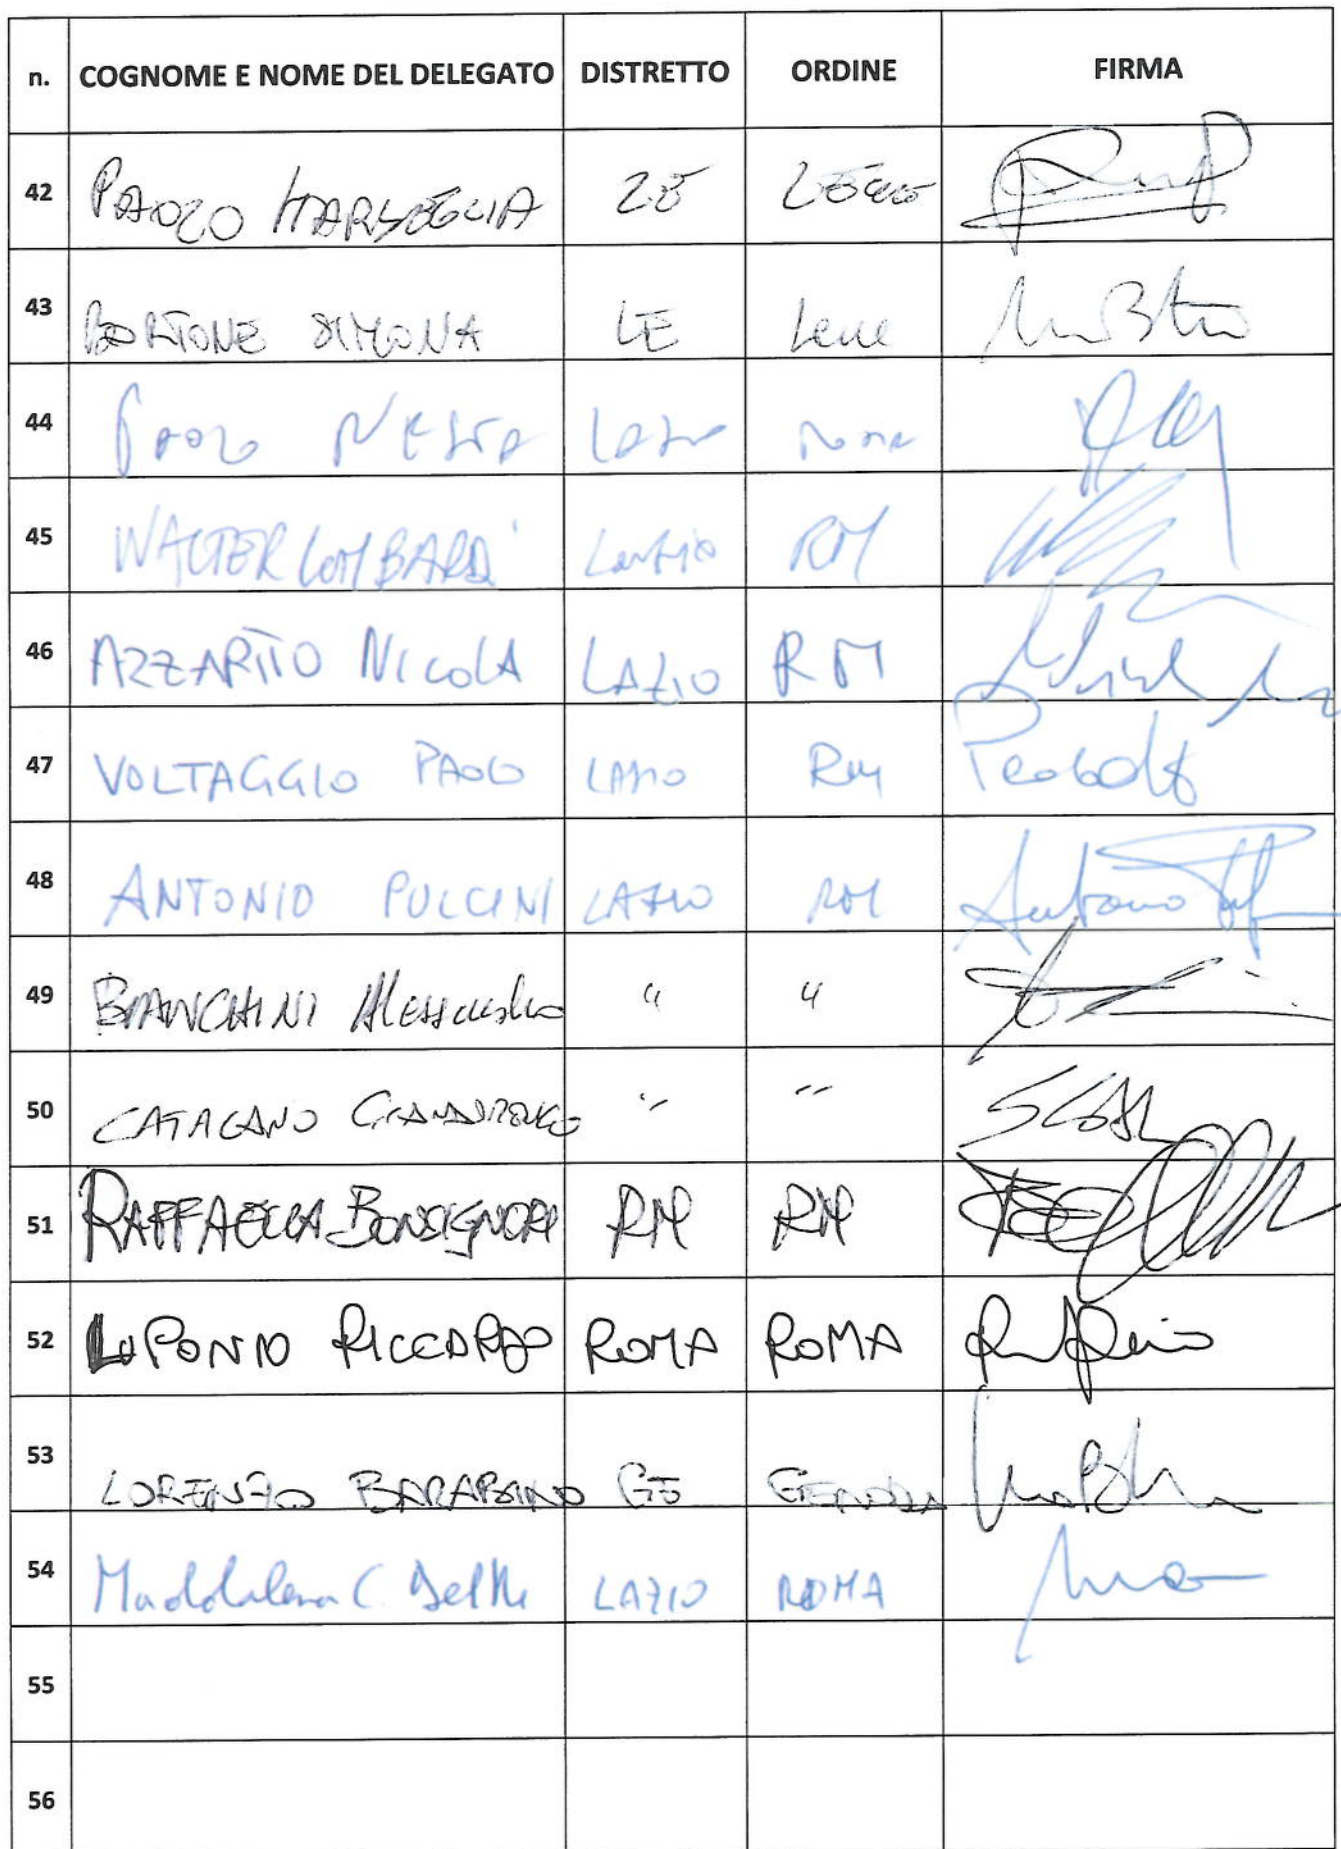 n. COGNOME E NOME DEL DELEGATO DISTRETTO ORDINE FIRMA
42 PAOLO MARSEGLIA LE LECCE
43 BORTONE SIMONA LE Lecce
44 PAOLO NESTA LAZIO ROMA
45 WALTER LOMBARDI LAZIO RM
46 AZZARITO NICOLA LAZIO RM
47 VOLTAGGIO PAOLO LAZIO RM
48 ANTONIO PULCINI LAZIO RM Antonio
49 BIANCHINI Alessandro " "
50 CATAGANO " "
51 RAFFAELLA BONSIGNORI RM RM
52 LO PONIO RICCARDO ROMA ROMA
53 LORENZO BARABINO GE GENOVA
54 Maddalena C. LAZIO ROMA
55
56